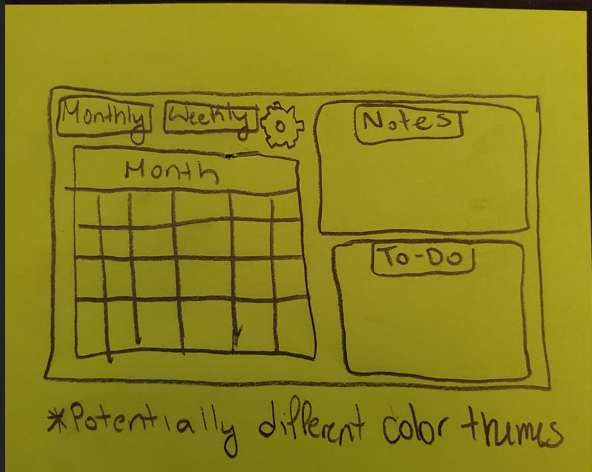 Monthly Weekly
Notes
Month
To-Do
*Potentially different color themes